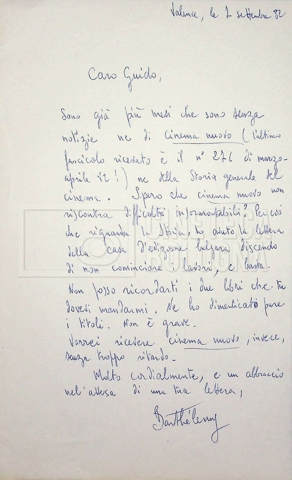 Valence, le 2 settembre 82
Caro Guido,
Sono già più mesi che sono senza
notizie ne di cinema nuovo (l'ultimo
fascicolo ricevuto è il n° 276 di marzo-
aprile 82!) ne della Storia generale del
cinema. Spero che cinema nuovo non
riscontra difficoltà Per ciò
che riguarda lo ho avuto la lettera
della casa d'edizione bulgara dicendo
di non cominciare i lavori, e basta.
Non posso ricordarti i due libri che tu
dovevi mandarmi. Ne ho dimenticato pure
i titoli. Non è grave.
Vorrei ricevere cinema nuovo, invece,
senza troppo ritardo.
Molto cordialmente, e un abbraccio
nell'attesa di una tua lettera,
Barthélemy